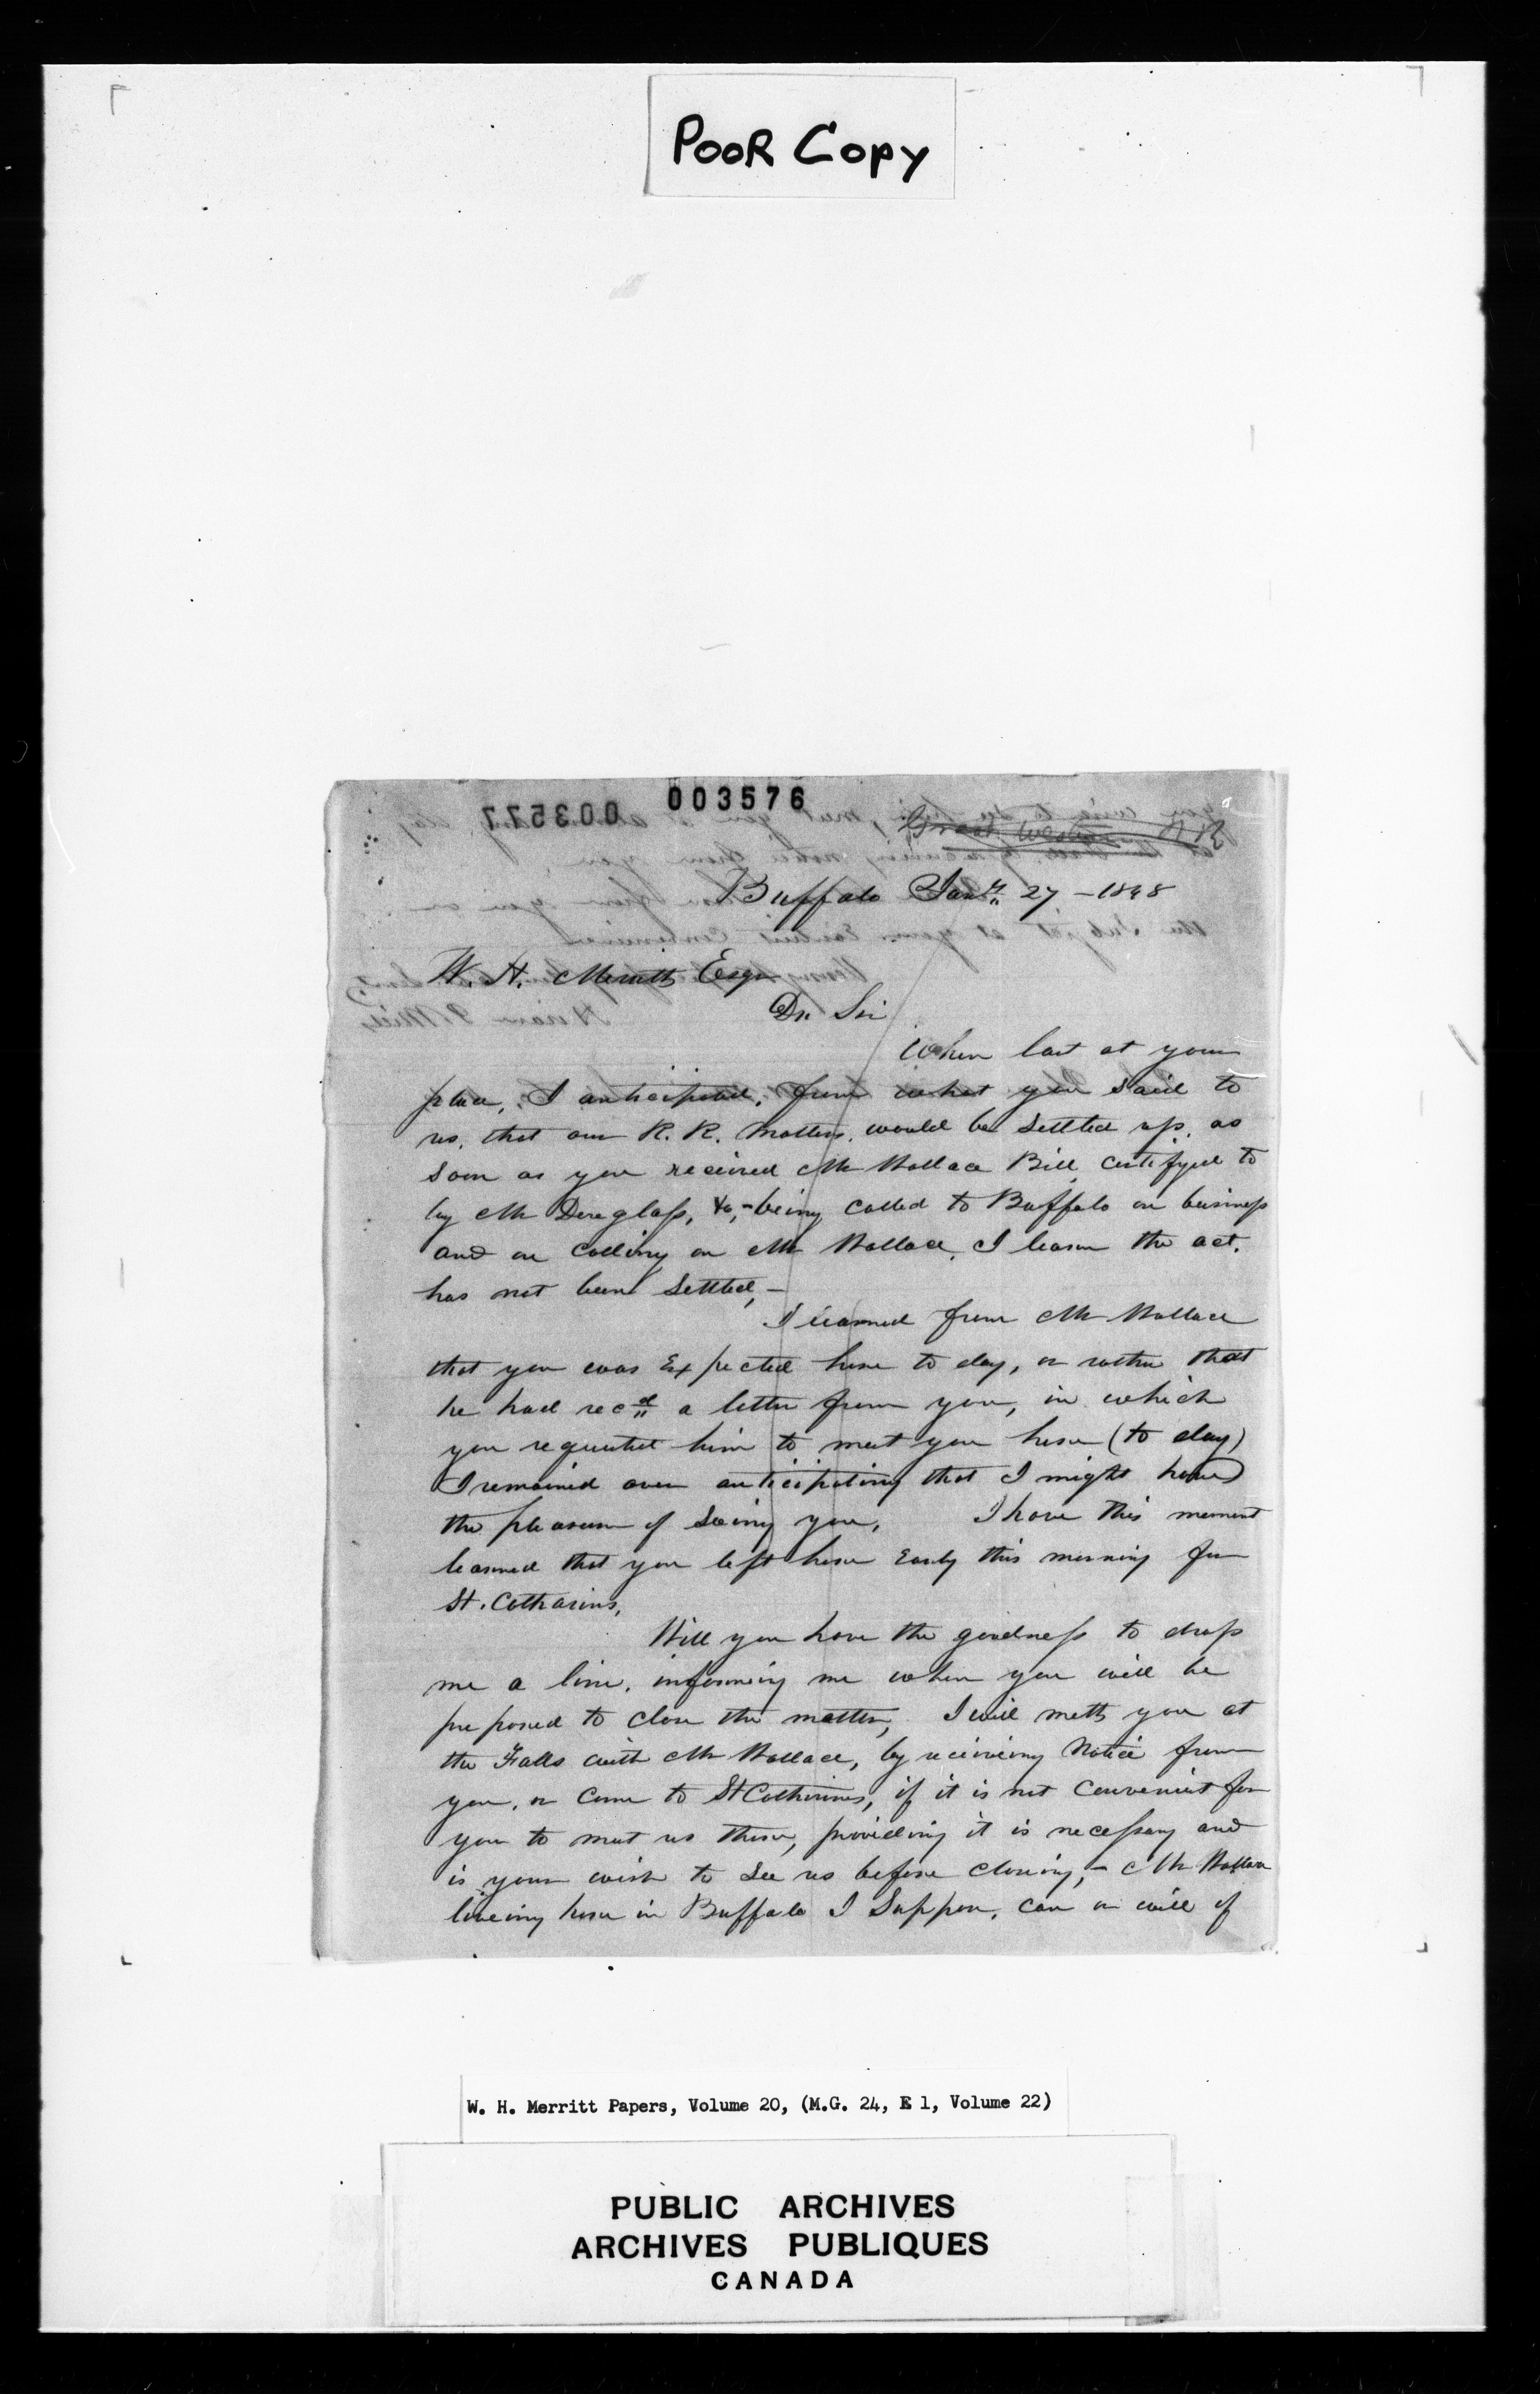 POOR COPY
003576
003577
Great Western R R
Buffalo Jany 27 - 1848
W. H. Merritt Esqr
Dr Sir
When last at your
place, I anticipated, from what you said to
us, that our R. R. matters, would be settled up, as
soon as you received Mr Wallace Bill, certifyed to
by Mr Douglass, &c, - being called to Buffalo on business
and on calling on Mr Wallace, I learn the act.
has not been settled, -
I learned from Mr Wallace
that you was Expected here to day, or rather that
he had recd a letter from you, in which
you requested him to meet you here (to day)
I remained over anticipating that I might have
the pleasure of seeing you, I have this moment
learned that you left here early this morning for
St. Catharins,
Will you have the goodness to drop
me a line, informing me when you will be
prepared to close the matter, I will mett you at
the Falls with Mr Wallace, by receiveing Notice from
you, or come to St Catherines, if it is not convenient for
you to meet us there, provideing it is necessary and
is your wish to see us before closing, - Mr Wallace
liveing here in Buffalo I Suppose, can or will if
W. H. Merritt Papers, Volume 20, (M.G. 24, E 1, Volume 22)
PUBLIC ARCHIVES
ARCHIVES PUBLIQUES
CANADA